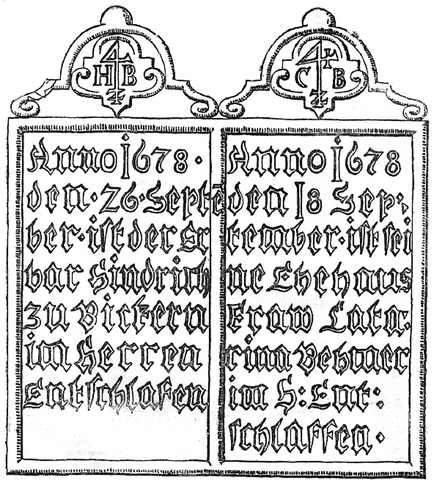 H B
Anno 1678.
den. 26. Septē
ber. ist der Er
bar Hindrich
zu Bickern
im Herren
Entschlafen
C B
Anno 1678
den 18 Sep:
tember. ist sei
ne Ehehaus
Fraw Cata:
rinn Behmer
im H: Ent:
schlaffen.